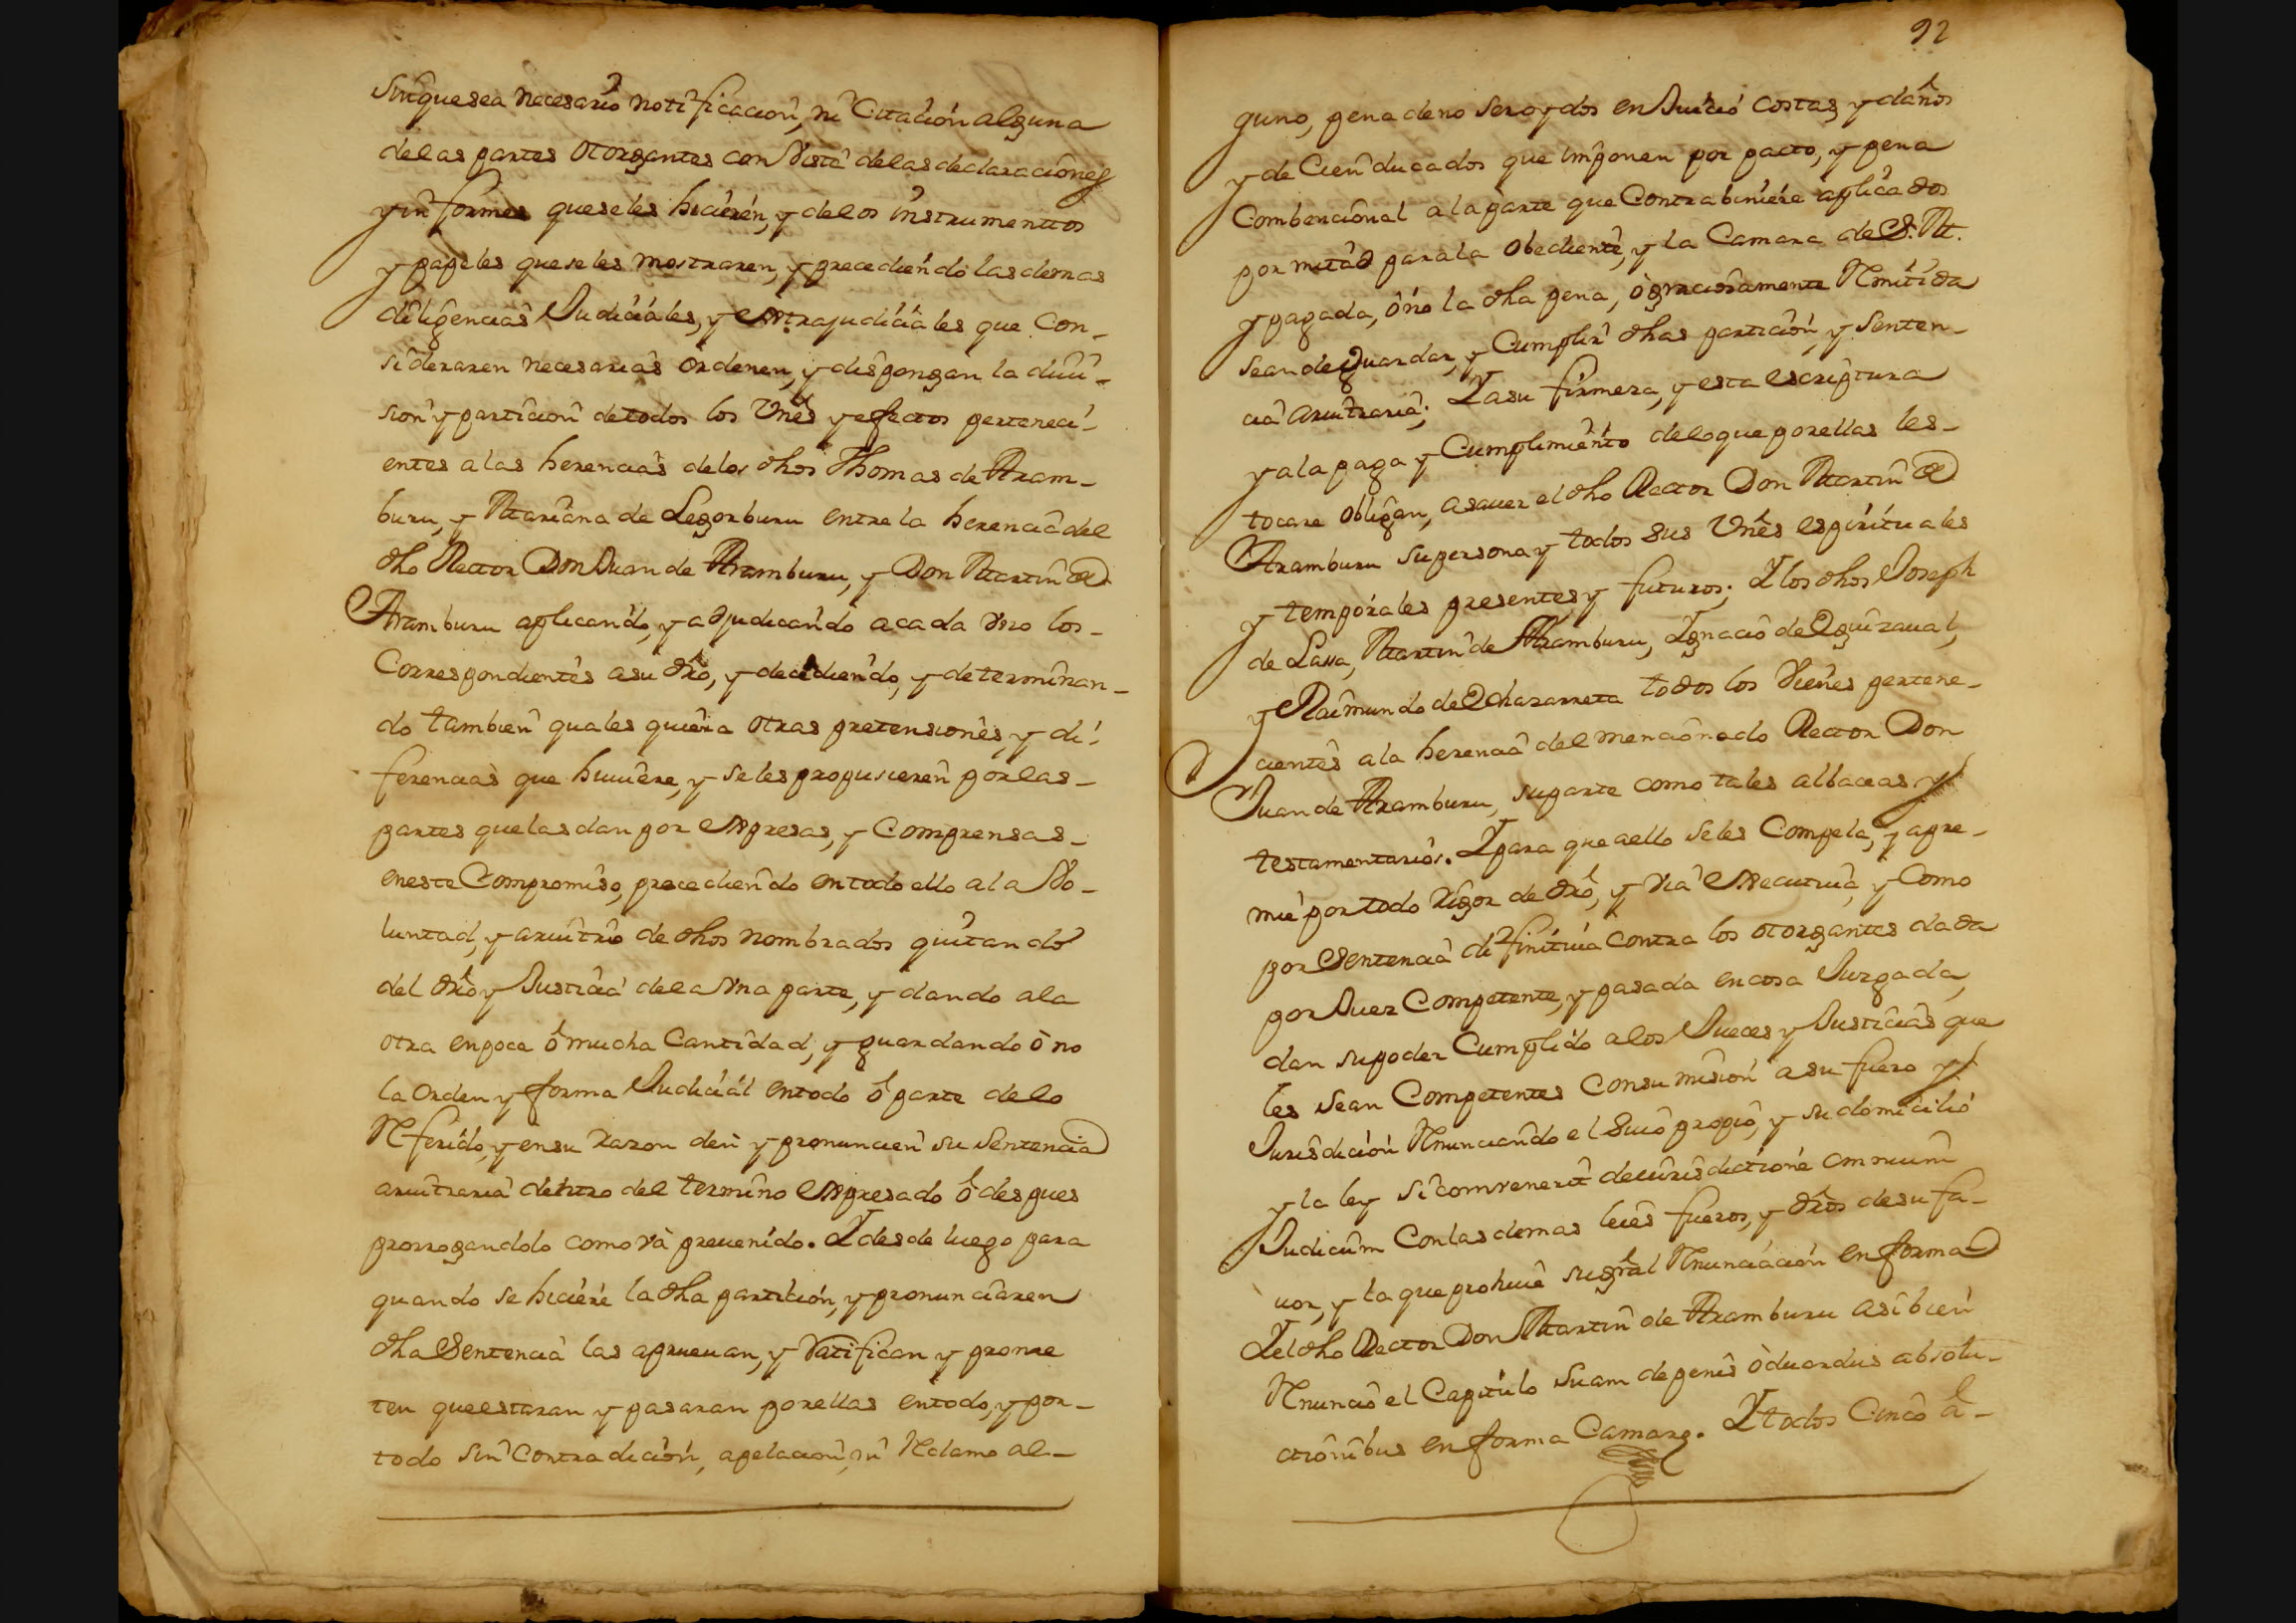 sin que sea necesario notificacion, ni Citacion alguna
de las partes otorgantes con vista de las declaraciones
y informes que se les hicieren, y de los instrumenttos
y papeles que se les mostraren, y precediendo las demas
diligencias Judiciales, y extrajudiciales que con-
sideraren necesarias ordenen, y dispongan la divi-
sion y particion de todos los Vnes y efectos perteneci-
entes a las herencias de los dhos Thomas de Aram-
buru, y Mariana de Legorburu entre la herencia del
dho Rector Don Juan de Aramburu, y Don Martin de
Aramburu aplicando, y adjudicando a cada vno los-
Correspondientes a su dro, y decidiendo, y determinan-
do tambien quales quiera otras pretensiones, y di-
ferencias que huuiere, y se les propusieren por las-
partes que las dan por expresas, y Comprensas-
en este Compromiso, precediendo en todo ello a la Vo-
luntad, y aruitrio de dhos nombrados quitando
del dro y Justicia de la Vna parte, y dando a la
otra en poca ô mucha Cantidad, y guardando ò no
la orden y forma Judicial en todo ô parte de lo
Referido, y en su razon den y pronuncien su sentencia
aruitraria dentro del termino expresado ô despues
prorrogandolo como và preuenido. Y desde luego para
quando se hiciere la dha particion, y pronunciaren
dha Sentencia las aprueuan, y ratifican y prome
ten que estaran y pasaran por ellas en todo, y por-
todo sin Contradicion, apelacion, ni Reclamo al-
92
guno, pena de no ser oydos en Juicio costas y daños
y de Cien ducados que imponen por pacto, y pena
Combencional a la parte que Contrabiniere aplicados
por mitad para la obediente, y la Camara de S. M.
y pagada, ô no la dha pena, ò graciosamente Remitida
se an de guardar, y Cumplir dhas particion, y senten-
cia aruitraria; Y a su firmeza, y esta escriptura
y a la paga y Cumplimiento de lo que por ellas les-
tocare obligan, a sauer el dho Rector Don Martin de
Aramburu su persona y todos sus Vnes espirituales
y temporales presentes y futuros; Y los dhos Joseph
de Lassa, Martin de Aramburu, Ygnacio de Eguizaual,
y Raimundo de Echazarreta todos los vienes pertene-
cientes a la herencia del mencionado Rector Don
Juan de Aramburu, su parte como tales albaceas y
testamentarios. Y para que a ello se les Compela, y apre-
mie por todo rigor de dro, y via executiua, y Como
por Sentencia difinitiua contra los otorgantes dada
por Juez Competente, y pasada en cosa Juzgada,
dan su poder Cumplido a los Jueces y Justicias que
les sean Competentes con sumision a su fuero y
Jurisdicion Renunciando el suio propio, y su domicilio
y la ley si convenerit de iurisdictione omnium
Judicum Con las demas leies fueros, y dros de su fa-
uor, y la que prohiue su gral Renunciacion en forma
Y el dho Rector Don Martin de Aramburu asi bien
Renuncio el Capitulo suam de penis òduardus absolu-
ctionibus en forma Camare. Y todos Cinco a-